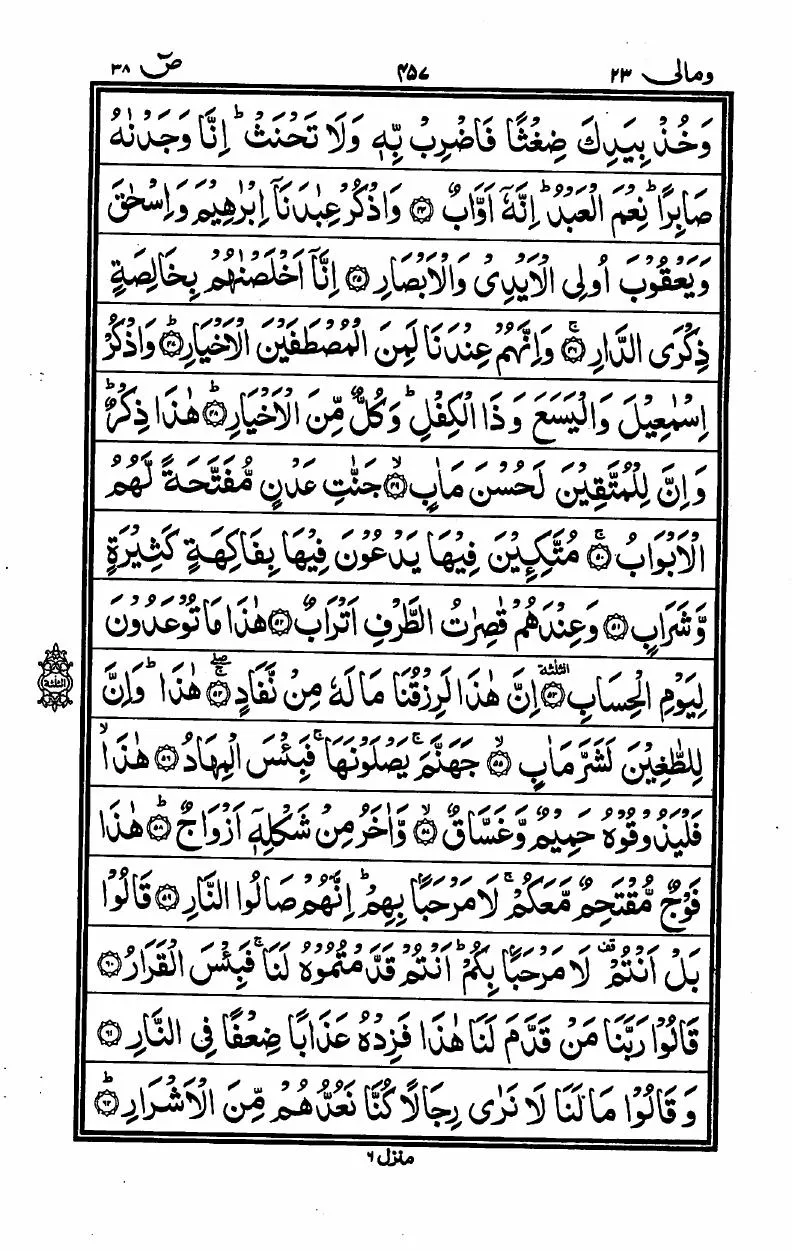 ومالی ۲۳ ۴۵۷ صٓ ۳۸
وَخُذْ بِيَدِكَ ضِغْثًا فَاضْرِبْ بِّهٖ وَلَا تَحْنَثْ ؕ اِنَّا وَجَدْنٰهُ
صَابِرًا ؕ نِعْمَ الْعَبْدُ ؕ اِنَّهٗۤ اَوَّابٌ ۝۴۴ وَاذْكُرْ عِبٰدَنَاۤ اِبْرٰهِيْمَ وَاِسْحٰقَ
وَيَعْقُوْبَ اُولِي الْاَيْدِيْ وَالْاَبْصَارِ ۝۴۵ اِنَّاۤ اَخْلَصْنٰهُمْ بِخَالِصَةٍ
ذِكْرَى الدَّارِ ۝۴۶ۚ وَاِنَّهُمْ عِنْدَنَا لَمِنَ الْمُصْطَفَيْنَ الْاَخْيَارِ ۝۴۷ؕ وَاذْكُرْ
اِسْمٰعِيْلَ وَالْيَسَعَ وَذَا الْكِفْلِ ؕ وَكُلٌّ مِّنَ الْاَخْيَارِ ۝۴۸ؕ هٰذَا ذِكْرٌ ؕ
وَاِنَّ لِلْمُتَّقِيْنَ لَحُسْنَ مَاٰبٍ ۝۴۹ۙ جَنّٰتِ عَدْنٍ مُّفَتَّحَةً لَّهُمُ
الْاَبْوَابُ ۝۵۰ۚ مُتَّكِـِٕيْنَ فِيْهَا يَدْعُوْنَ فِيْهَا بِفَاكِهَةٍ كَثِيْرَةٍ
وَّشَرَابٍ ۝۵۱ وَعِنْدَهُمْ قٰصِرٰتُ الطَّرْفِ اَتْرَابٌ ۝۵۲ هٰذَا مَا تُوْعَدُوْنَ
لِيَوْمِ الْحِسَابِ ۝۵۳ الثلٰثة اِنَّ هٰذَا لَرِزْقُنَا مَا لَهٗ مِنْ نَّفَادٍ ۝۵۴ۚۖ هٰذَا ؕ وَاِنَّ
الثلٰثة
لِلطّٰغِيْنَ لَشَرَّ مَاٰبٍ ۝۵۵ۙ جَهَنَّمَ ۚ يَصْلَوْنَهَا ۚ فَبِئْسَ الْمِهَادُ ۝۵۶ هٰذَا ۙ
فَلْيَذُوْقُوْهُ حَمِيْمٌ وَّغَسَّاقٌ ۝۵۷ۙ وَّاٰخَرُ مِنْ شَكْلِهٖۤ اَزْوَاجٌ ۝۵۸ؕ هٰذَا
فَوْجٌ مُّقْتَحِمٌ مَّعَكُمْ ۚ لَا مَرْحَبًۢا بِهِمْ ؕ اِنَّهُمْ صَالُوا النَّارِ ۝۵۹ قَالُوْا
بَلْ اَنْتُمْ ۫ لَا مَرْحَبًۢا بِكُمْ ؕ اَنْتُمْ قَدَّمْتُمُوْهُ لَنَا ۚ فَبِئْسَ الْقَرَارُ ۝۶۰
قَالُوْا رَبَّنَا مَنْ قَدَّمَ لَنَا هٰذَا فَزِدْهُ عَذَابًا ضِعْفًا فِي النَّارِ ۝۶۱
وَقَالُوْا مَا لَنَا لَا نَرٰى رِجَالًا كُنَّا نَعُدُّهُمْ مِّنَ الْاَشْرَارِ ۝۶۲ؕ
منزل ۶